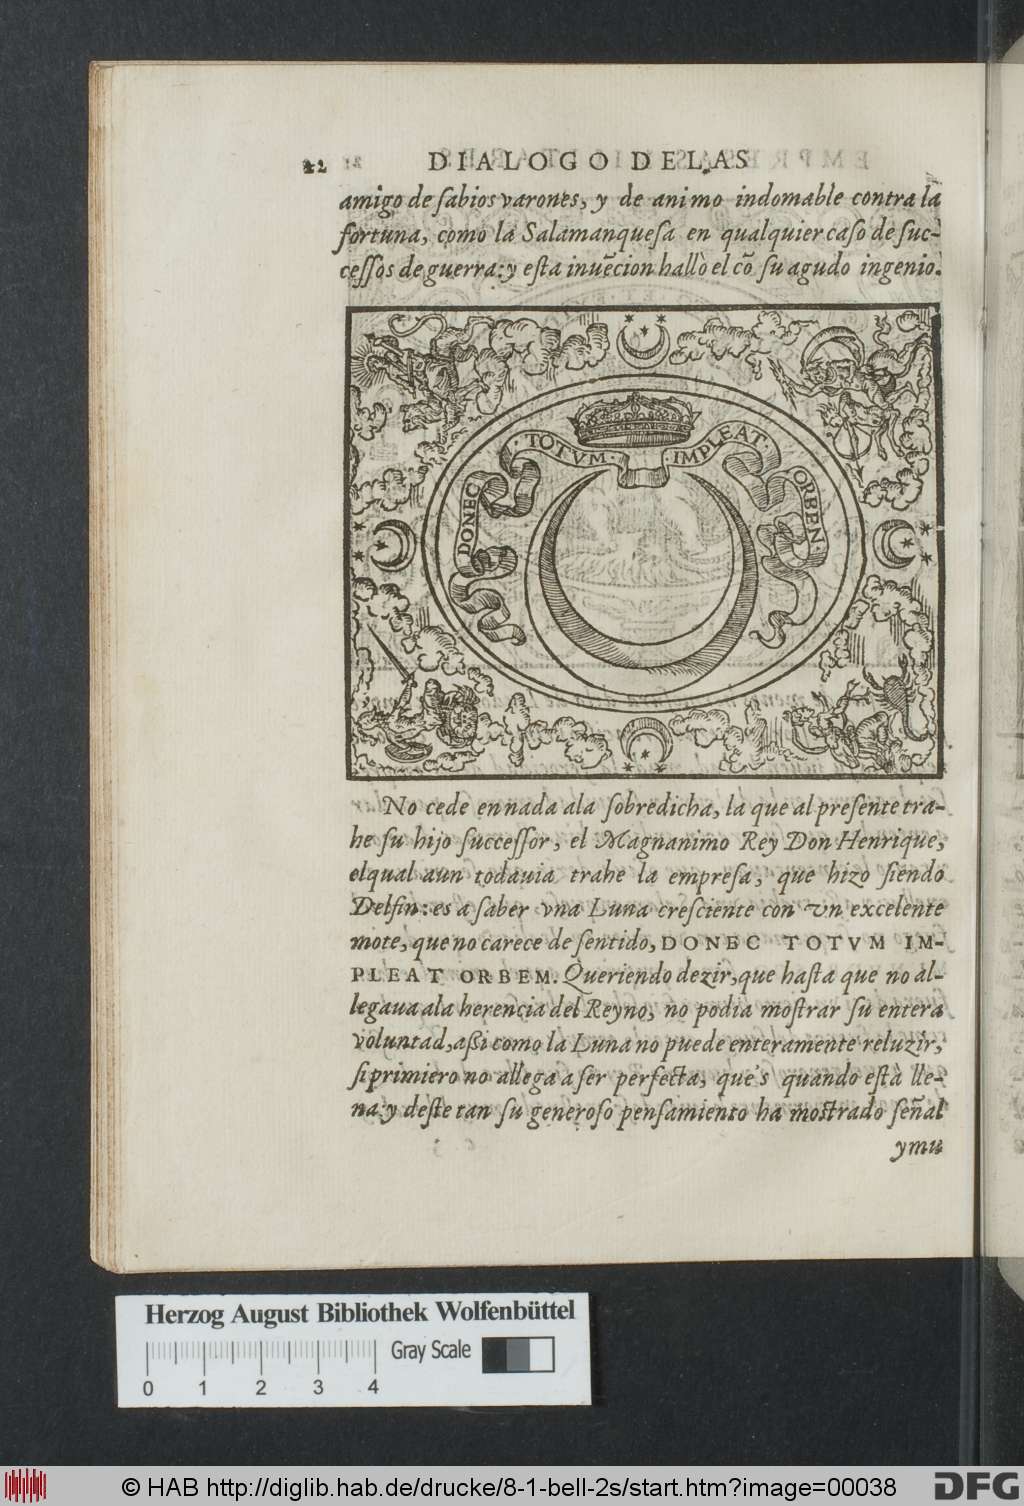 22 DIALOGO DE LAS
amigo de sabios varones, y de animo indomable contra la
fortuna, como la Salamanquesa en qualquier caso de suc-
cessos de guerra: y esta inuēcion hallò el cõ su agudo ingenio.
DONEC · TOTVM · IMPLEAT · ORBEN ·
No cede en nada ala sobredicha, la que al presente tra-
he su hijo successor, el Magnanimo Rey Don Henrique,
elqual aun todauia trahe la empresa, que hizo siendo
Delfin: es a saber vna Luna cresciente con vn excelente
mote, que no carece de sentido, DONEC TOTVM IM-
PLEAT ORBEM. Queriendo dezir, que hasta que no al-
legaua ala herencia del Reyno, no podia mostrar su entera
voluntad, aßi como la Luna no puede enteramente reluzir,
si primiero no allega a ser perfecta, que's quando està lle-
na: y deste tan su generoso pensamiento ha mostrado señal
y mu
Herzog August Bibliothek Wolfenbüttel
Gray Scale
0 1 2 3 4
© HAB http://diglib.hab.de/drucke/8-1-bell-2s/start.htm?image=00038
DFG